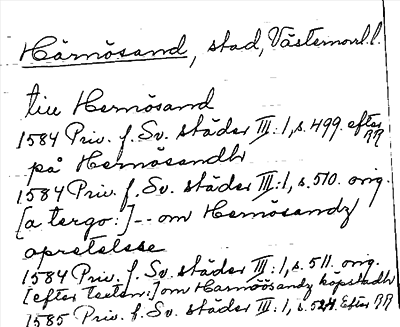 Härnösand, stad, Västernorrl. l.
till Hernösand
1584 Priv. f. Sv. städer III:1, s. 499. efter RR
på Hernösandh
1584 Priv. f. Sv. städer III:1, s. 510. orig.
[a tergo:] -- om Hernösandz
oprettelsse
1584 Priv. f. Sv. städer III:1, s. 511. orig.
[efter texten:] om Harnöösandz köpstadh
1585 Priv. f. Sv. städer III:1, s. 524. Efter RR